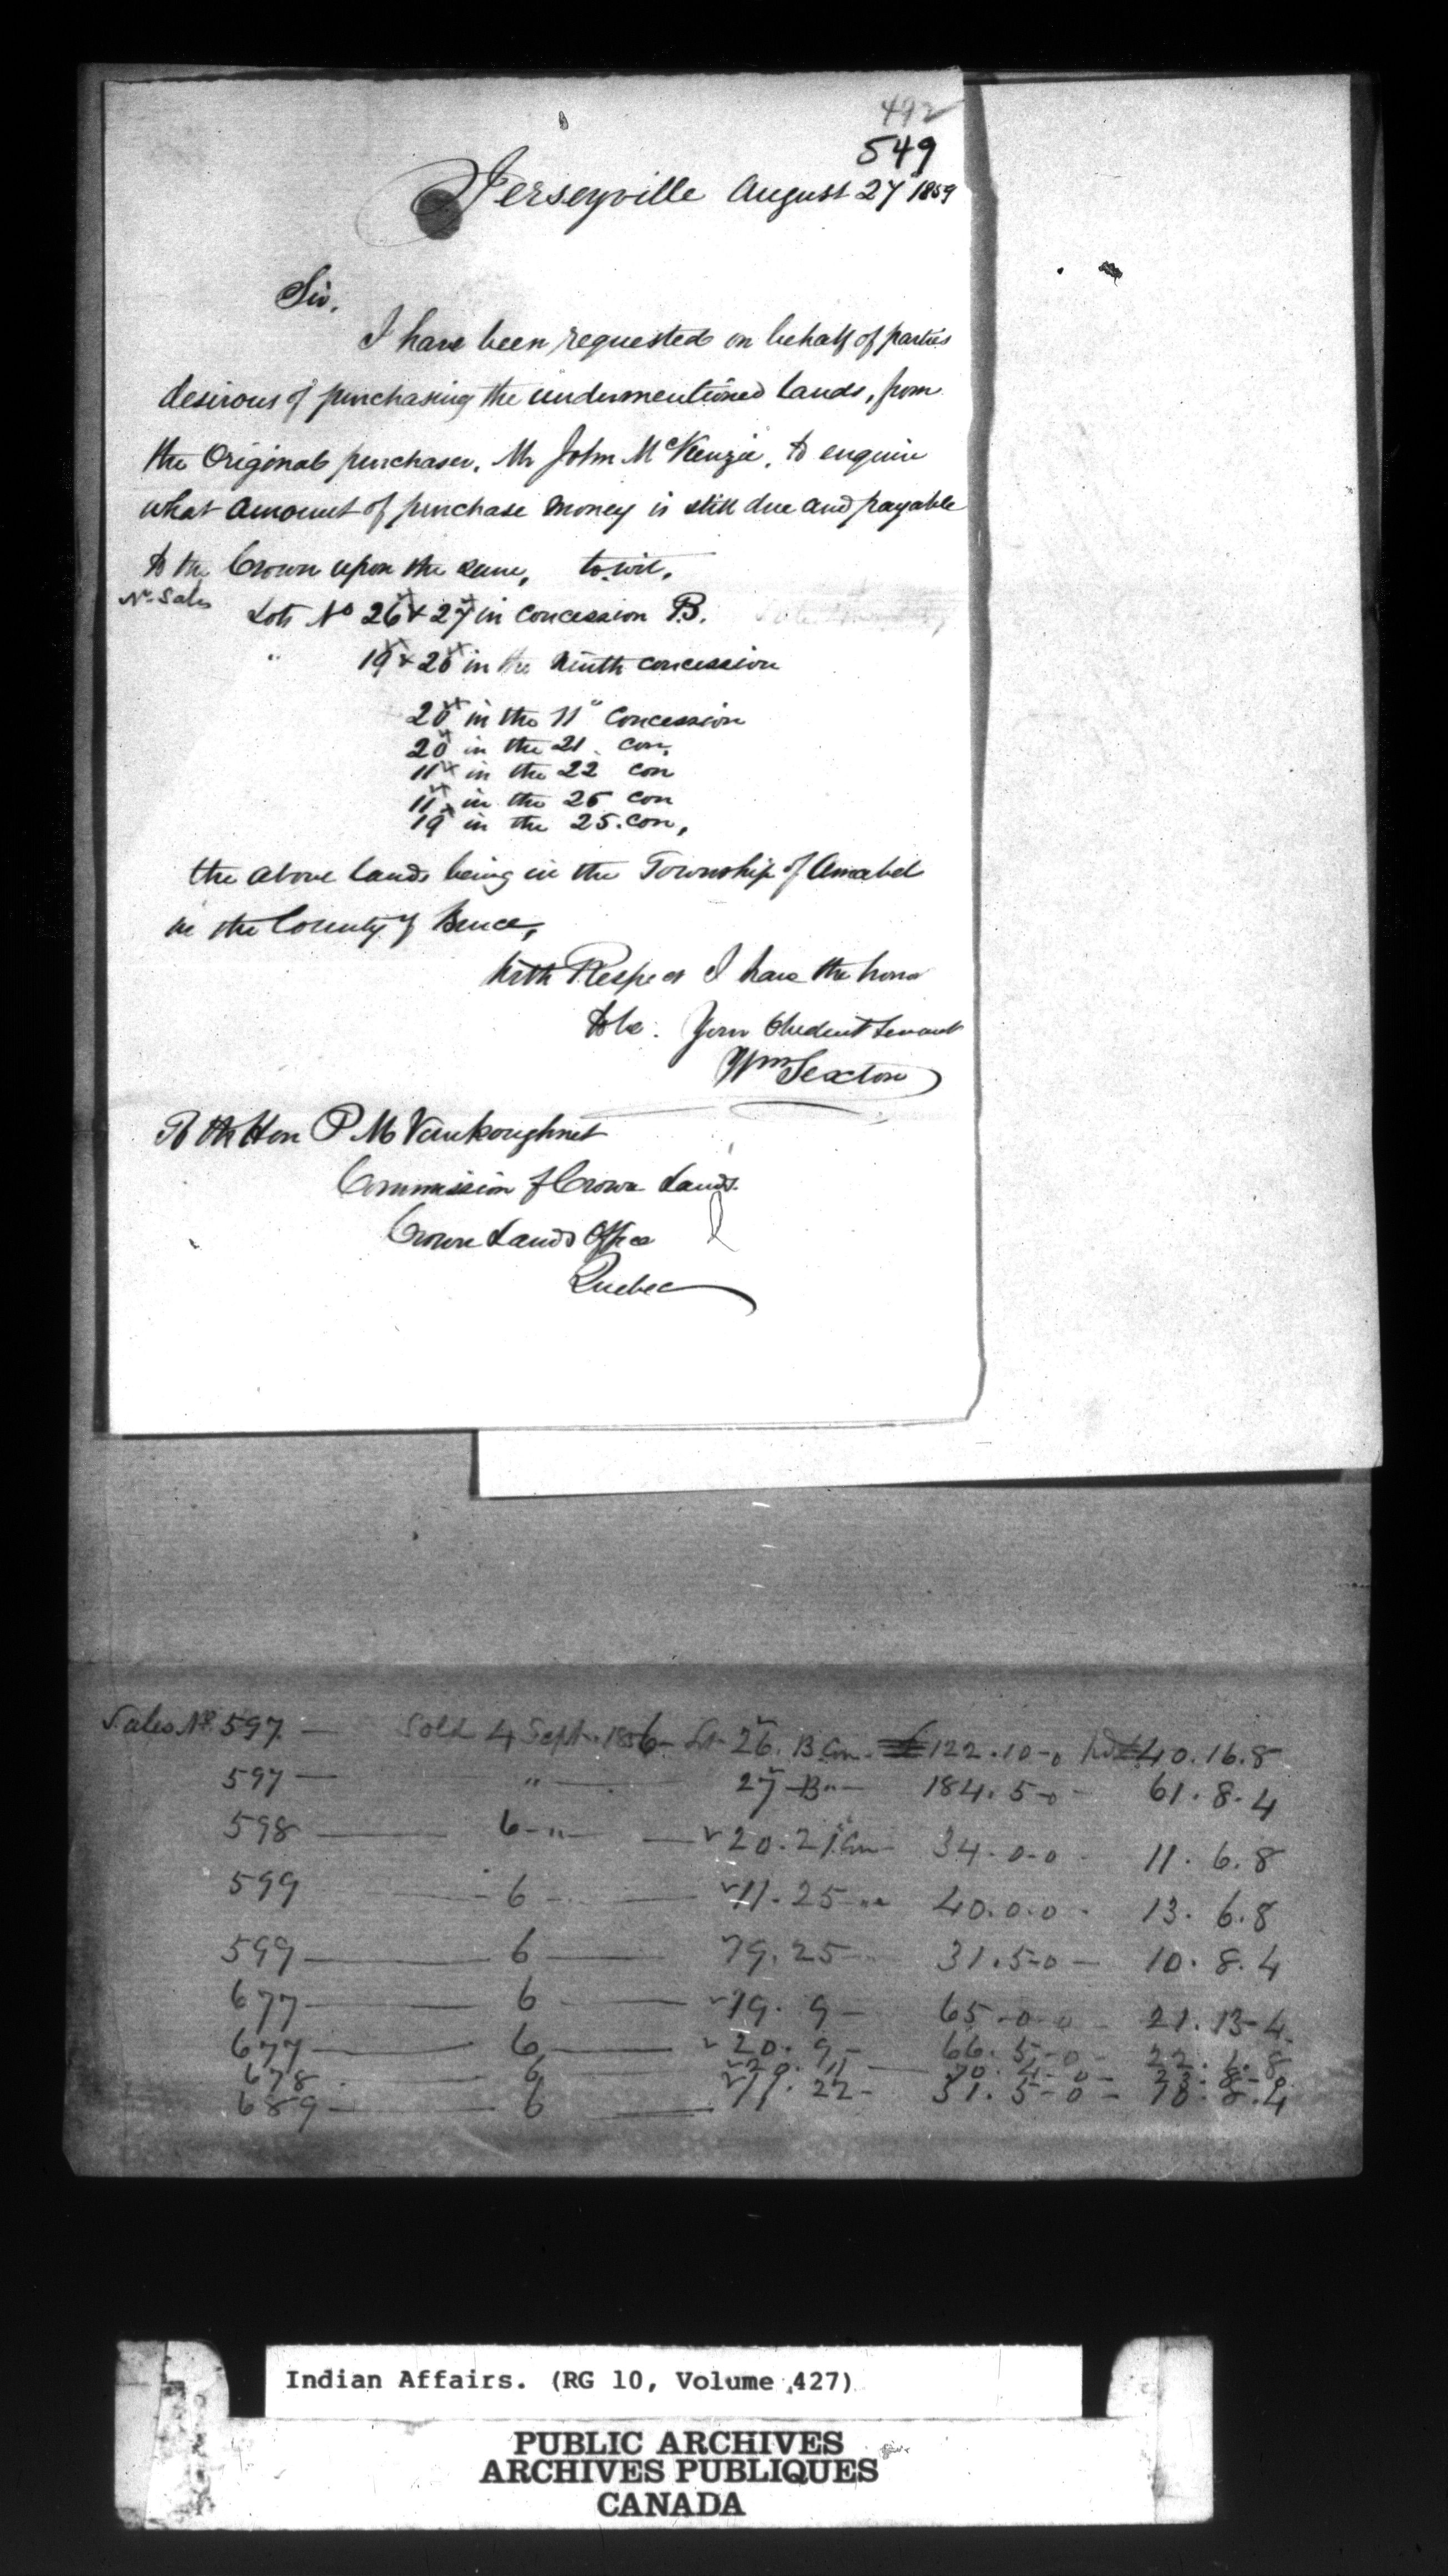 492
549
Jerseyville August 27 1859
Sir.
I have been requested on behalf of parties
desirous of purchasing the undermentioned lands, from
the Original purchaser, Mr John McKenzie, to enquire
what amount of purchase money is still due and payable
to the Crown upon the same, to wit,
No Sales
Lots No 26 & 27 in Concession B.
" 19 & 20 in the Ninth concession
20 in the 11" Concession
20 in the 21. con,
11 in the 22 con
11 in the 25 con
19 in the 25. con,
the above lands being in the Township of Amabel
in the County of Bruce,
With Respect I have the honor
to be. Your Obedient Servant
Wm Sexton
To the Hon P M Vankoughnet
Commission of Crown Lands.
Crown Lands Office
Quebec
Sales No 597 — Sold 4 Sept. 1856 - Lt 26. B Con. £122.10-0 £40.16.8
597 — " — 27 B " — 184.5-0 - 61.8.4
598 — 6 - " — 20.21 Con - 34.0-0 - 11.6.8
599 — 6 — 11.25 - " 40.0.0 - 13.6.8
599 — 6 — 19.25 - 31.5-0 - 10.8.4
677 — 6 — 19.9 - 65-0-0 - 21.13-4
677 — 6 — 20.9 - 66.5-0 - 22.1.8
678 - 6 20.11 — 70.4-0 - 23.8-0
689 — 6 — 11.22 - 31.5-0 - 10.8.4
Indian Affairs. (RG 10, Volume 427)
PUBLIC ARCHIVES
ARCHIVES PUBLIQUES
CANADA